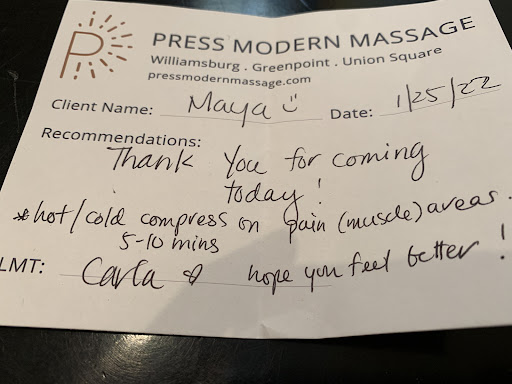 PRESS MODERN MASSAGE
Williamsburg . Greenpoint . Union Square
pressmodernmassage.com
Client Name: Maya Date: 1/25/22
Recommendations:
Thank you for coming
today!
*hot/cold compress on pain (muscle) areas.
5-10 mins
LMT: Carla hope you feel better!